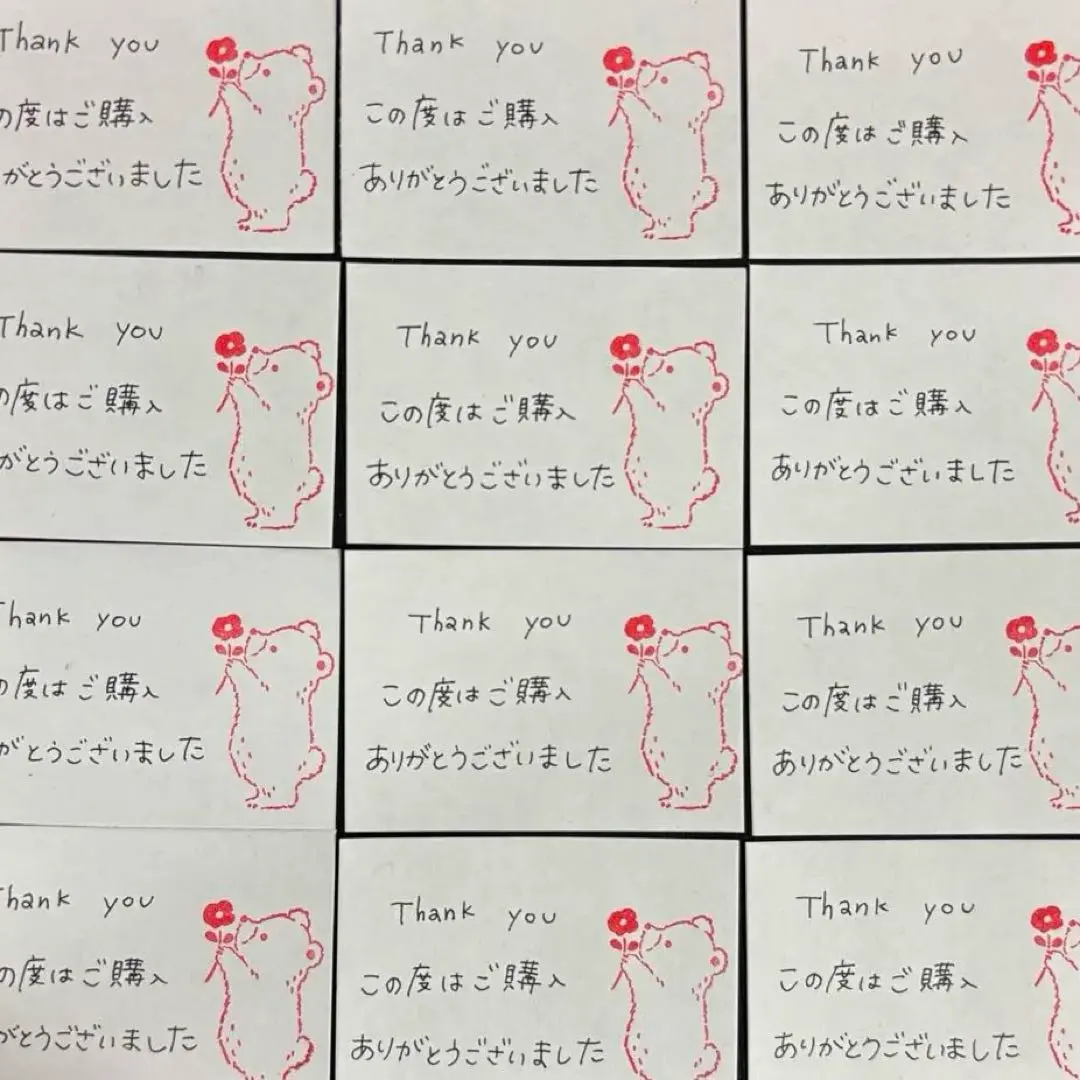 Thank you
の度はご購入
がとうございました
Thank you
この度はご購入
ありがとうございました
Thank you
この度はご購入
ありがとうございました
Thank you
の度はご購入
がとうございました
Thank you
この度はご購入
ありがとうございました
Thank you
この度はご購入
ありがとうございました
Thank you
の度はご購入
がとうございました
Thank you
この度はご購入
ありがとうございました
Thank you
この度はご購入
ありがとうございました
Thank you
の度はご購入
がとうございました
Thank you
この度はご購入
ありがとうございました
Thank you
この度はご購入
ありがとうございました